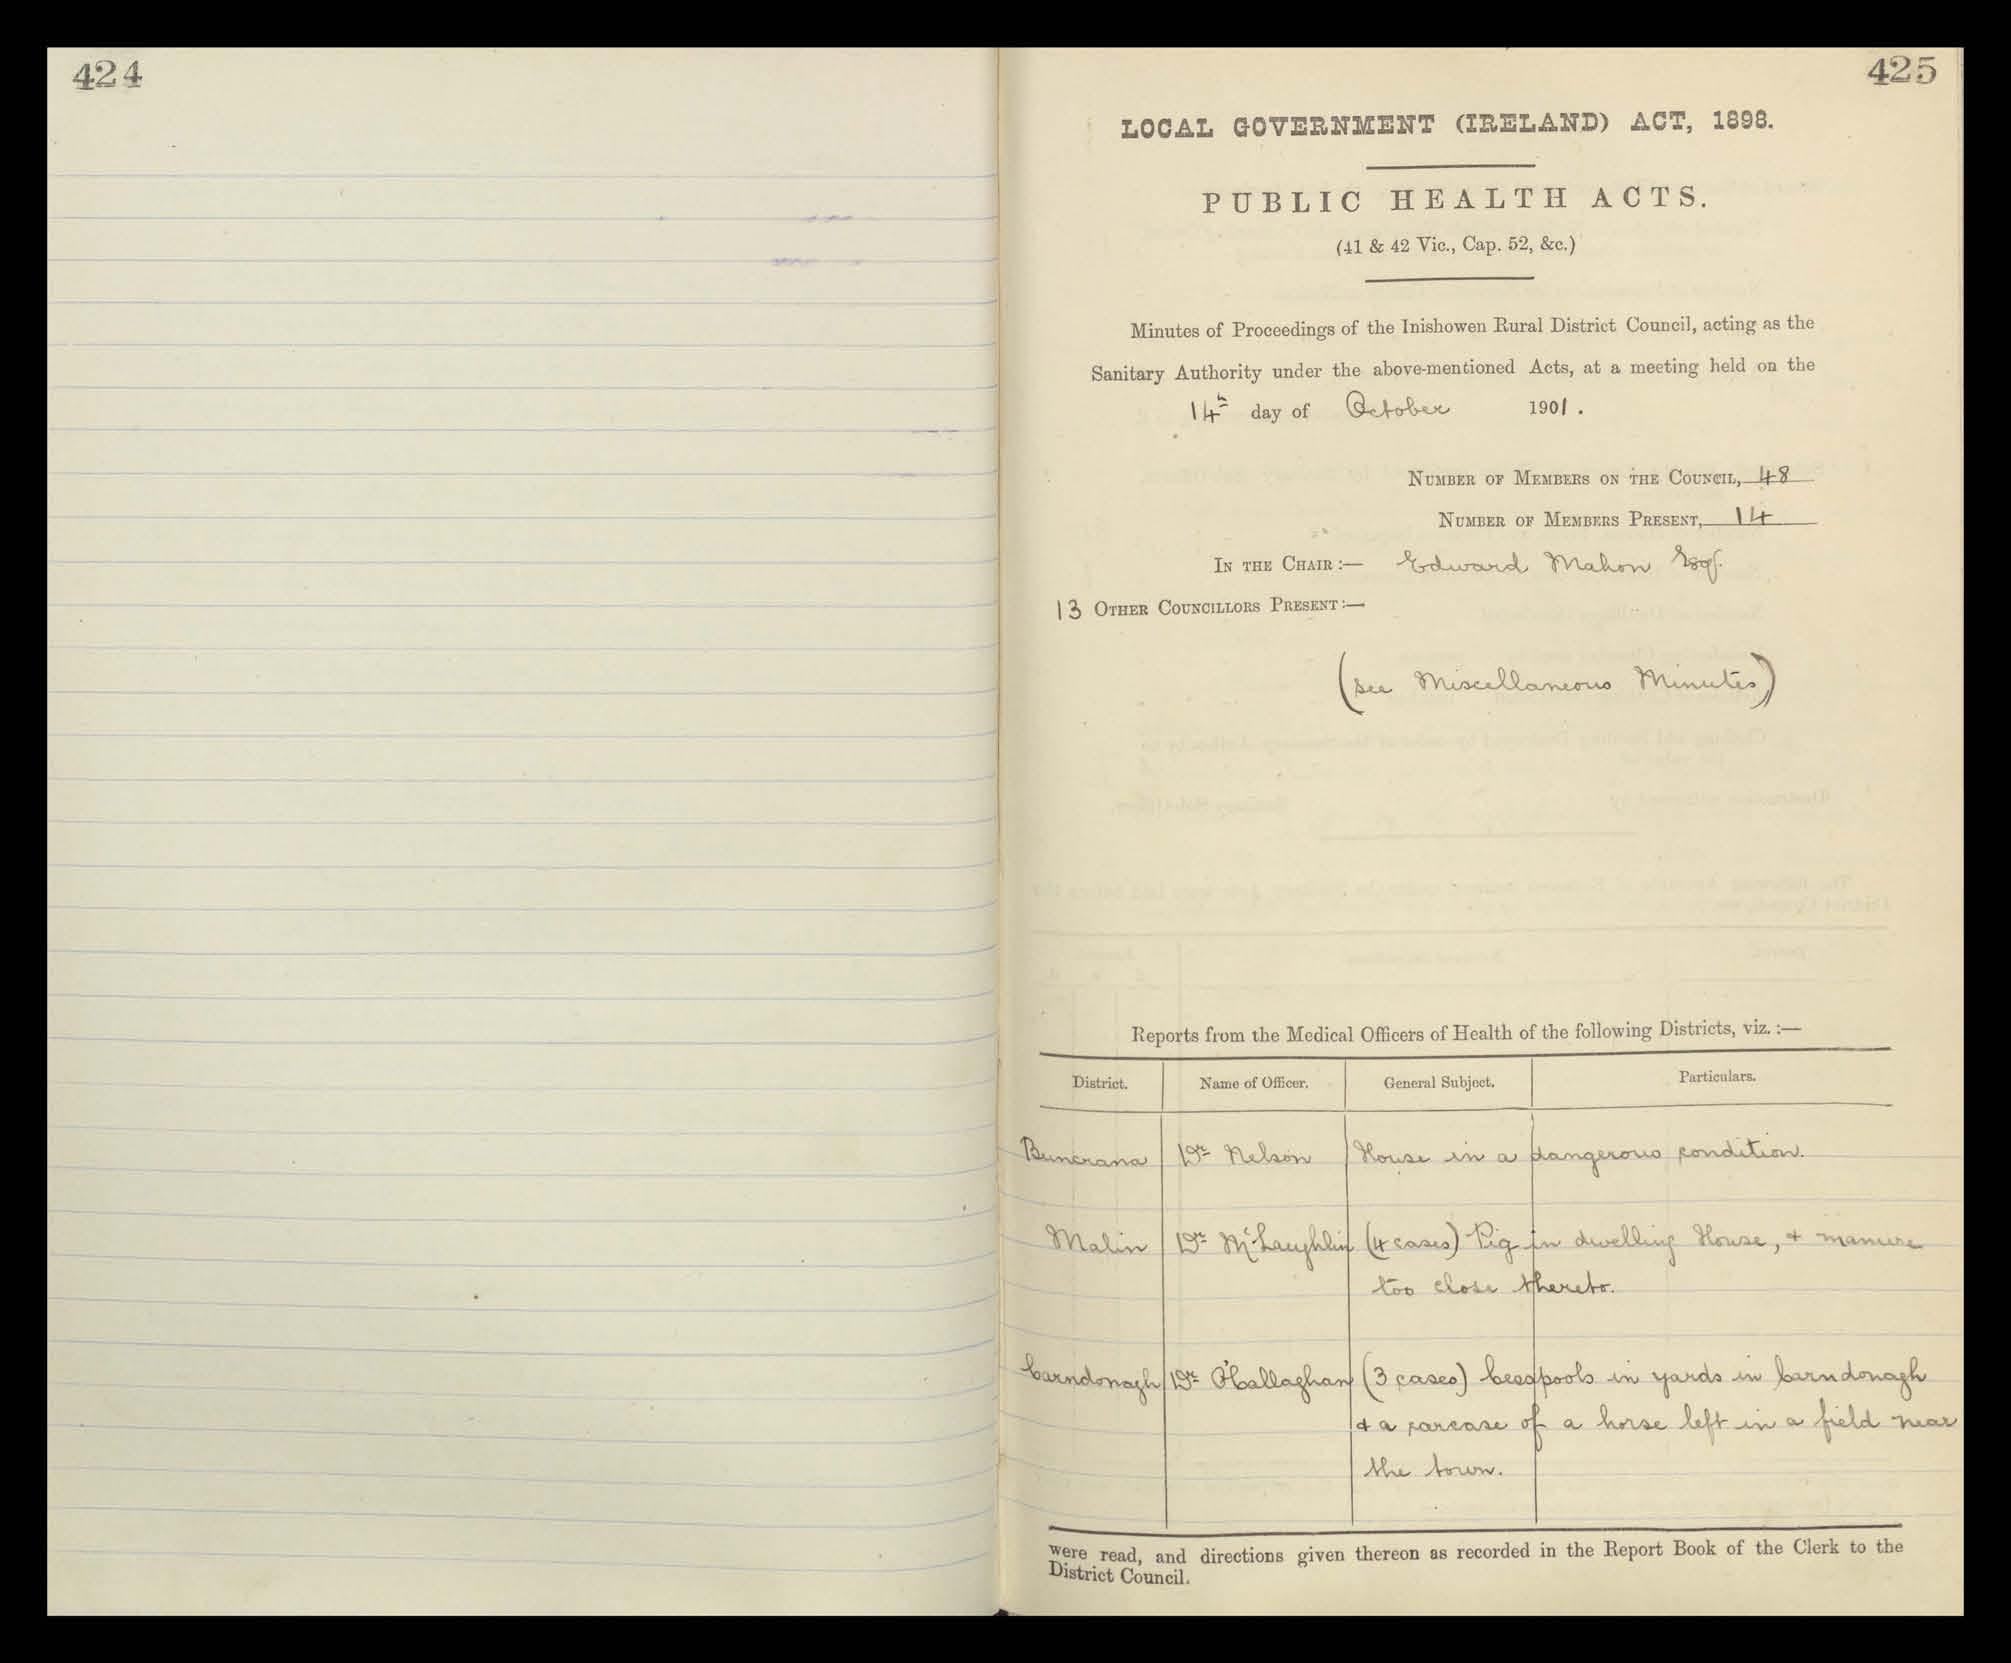 424
425
LOCAL GOVERNMENT (IRELAND) ACT, 1898.
PUBLIC HEALTH ACTS.
(41 & 42 Vic., Cap. 52, &c.)
Minutes of Proceedings of the Inishowen Rural District Council, acting as the
Sanitary Authority under the above-mentioned Acts, at a meeting held on the
14th day of October 1901.
NUMBER OF MEMBERS ON THE COUNCIL, 48
NUMBER OF MEMBERS PRESENT, 14
IN THE CHAIR:— Edward Mahon Esq.
13 OTHER COUNCILLORS PRESENT:—
(see Miscellaneous Minutes)
Reports from the Medical Officers of Health of the following Districts, viz.:—
District. Name of Officer. General Subject. Particulars.
Buncrana Dr Nelson House in a dangerous condition.
Malin Dr McLaughlin (4 cases) Pig in dwelling House, & manure
too close thereto.
Carndonagh Dr O'Callaghan (3 cases) Cesspools in yards in Carndonagh
& a carcase of a horse left in a field near
the town.
were read, and directions given thereon as recorded in the Report Book of the Clerk to the
District Council.